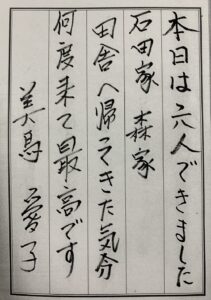 本日は六人できました
石田家 森家
田舎へ帰ってきた気分
何度来て最高です
美馬 愛子